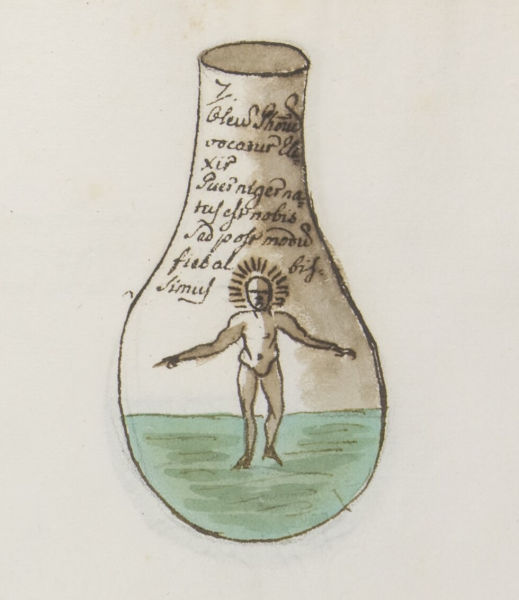 7.
Oleū Phorū
vocatur Eli-
xir
Puer niger na-
tus est nobis
Sad post modū
fiet al bis-
simus